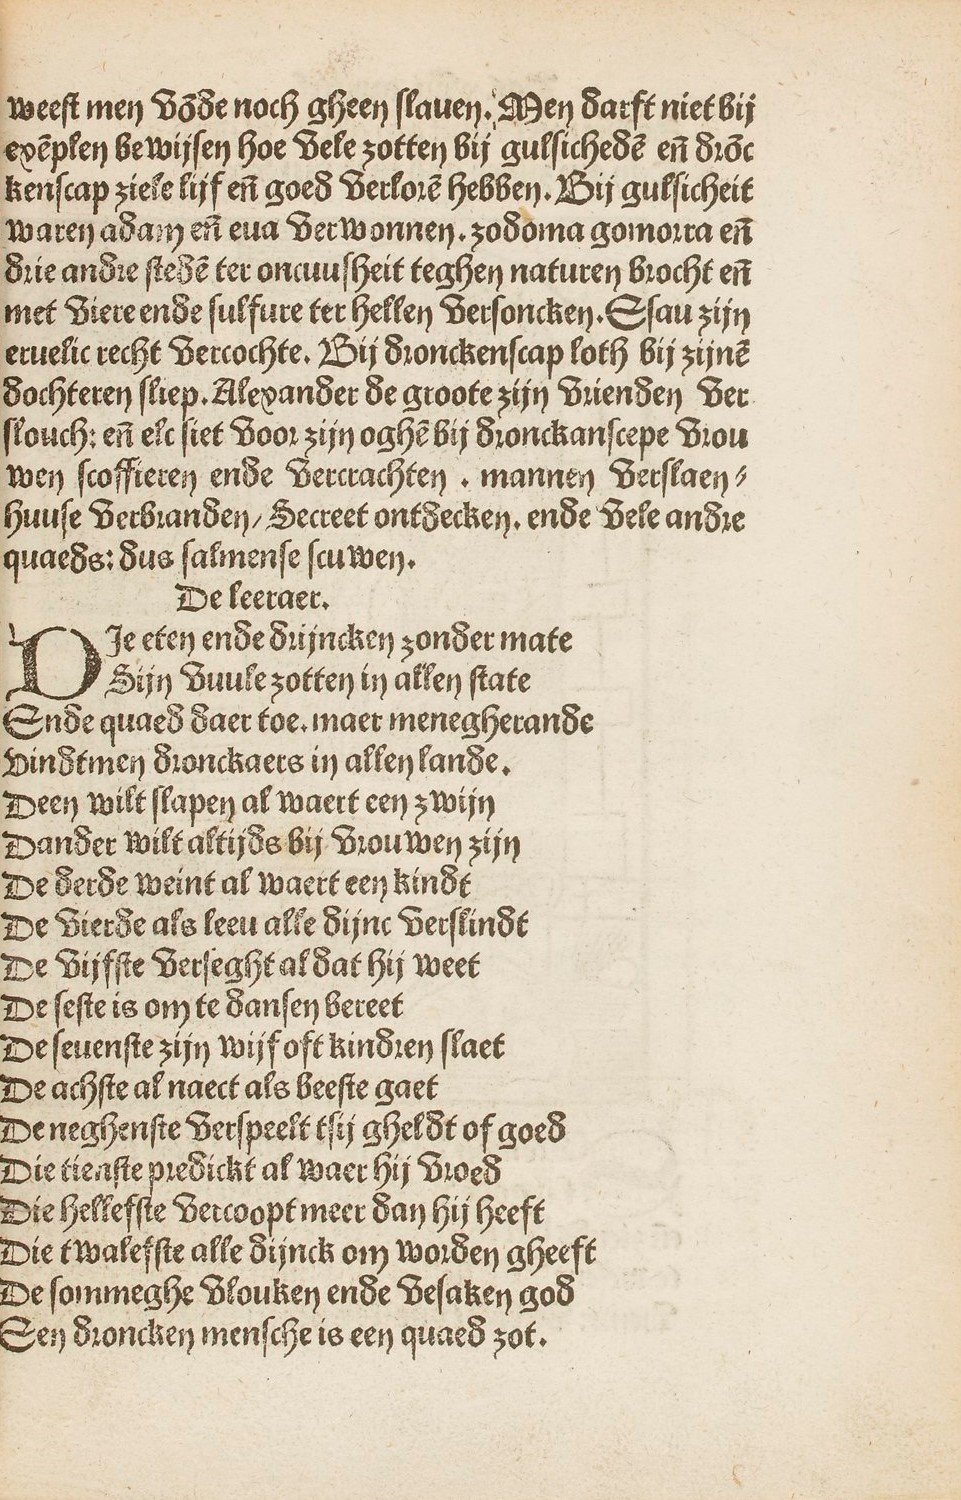 weest men võde noch gheen slauen. Men darft niet bij
exẽplen bewijsen hoe vele zotten bij gulsichedẽ eñ drõc
kenscap ziele lijf eñ goed verlorẽ hebben. Bij gulsicheit
waren adam eñ eua verwonnen. zodoma gomorra eñ
drie andre stedẽ ter oncuusheit teghen naturen brocht eñ
met viere ende sulfure ter hellen versoncken. Esau zijn
eruelic recht vercochte. Bij dronckenscap loth bij zijnẽ
dochteren sliep. Alexander de groote zijn vrienden ver
slouch: eñ elc siet voor zijn oghẽ bij dronckanscepe vrou
wen scoffieren ende vercrachten . mannen verslaen/
huuse verbranden/ Secreet ontdecken. ende vele andre
quaeds: dus salmense scuwen.
De leeraer.
DIe eten ende drijncken zonder mate
Sijn vuule zotten in allen state
Ende quaed daer toe. maer menegherande
vindtmen dronckaers in allen lande.
Deen wilt slapen al waert een zwijn
Dander wilt altijds bij vrouwen zijn
De derde weint al waert een kindt
De vierde als leeu alle dijnc verslindt
De vijfste verseght al dat hij weet
De seste is om te dansen bereet
De seuenste zijn wijf oft kindren slaet
De achste al naect als beeste gaet
De neghenste verspeelt tsij gheldt of goed
Die tienste predickt al waer hij vroed
Die hellefste vercoopt meer dan hij heeft
Die twalefste alle dijnck om worden gheeft
De sommeghe vlouken ende vesaken god
Een droncken mensche is een quaed zot.